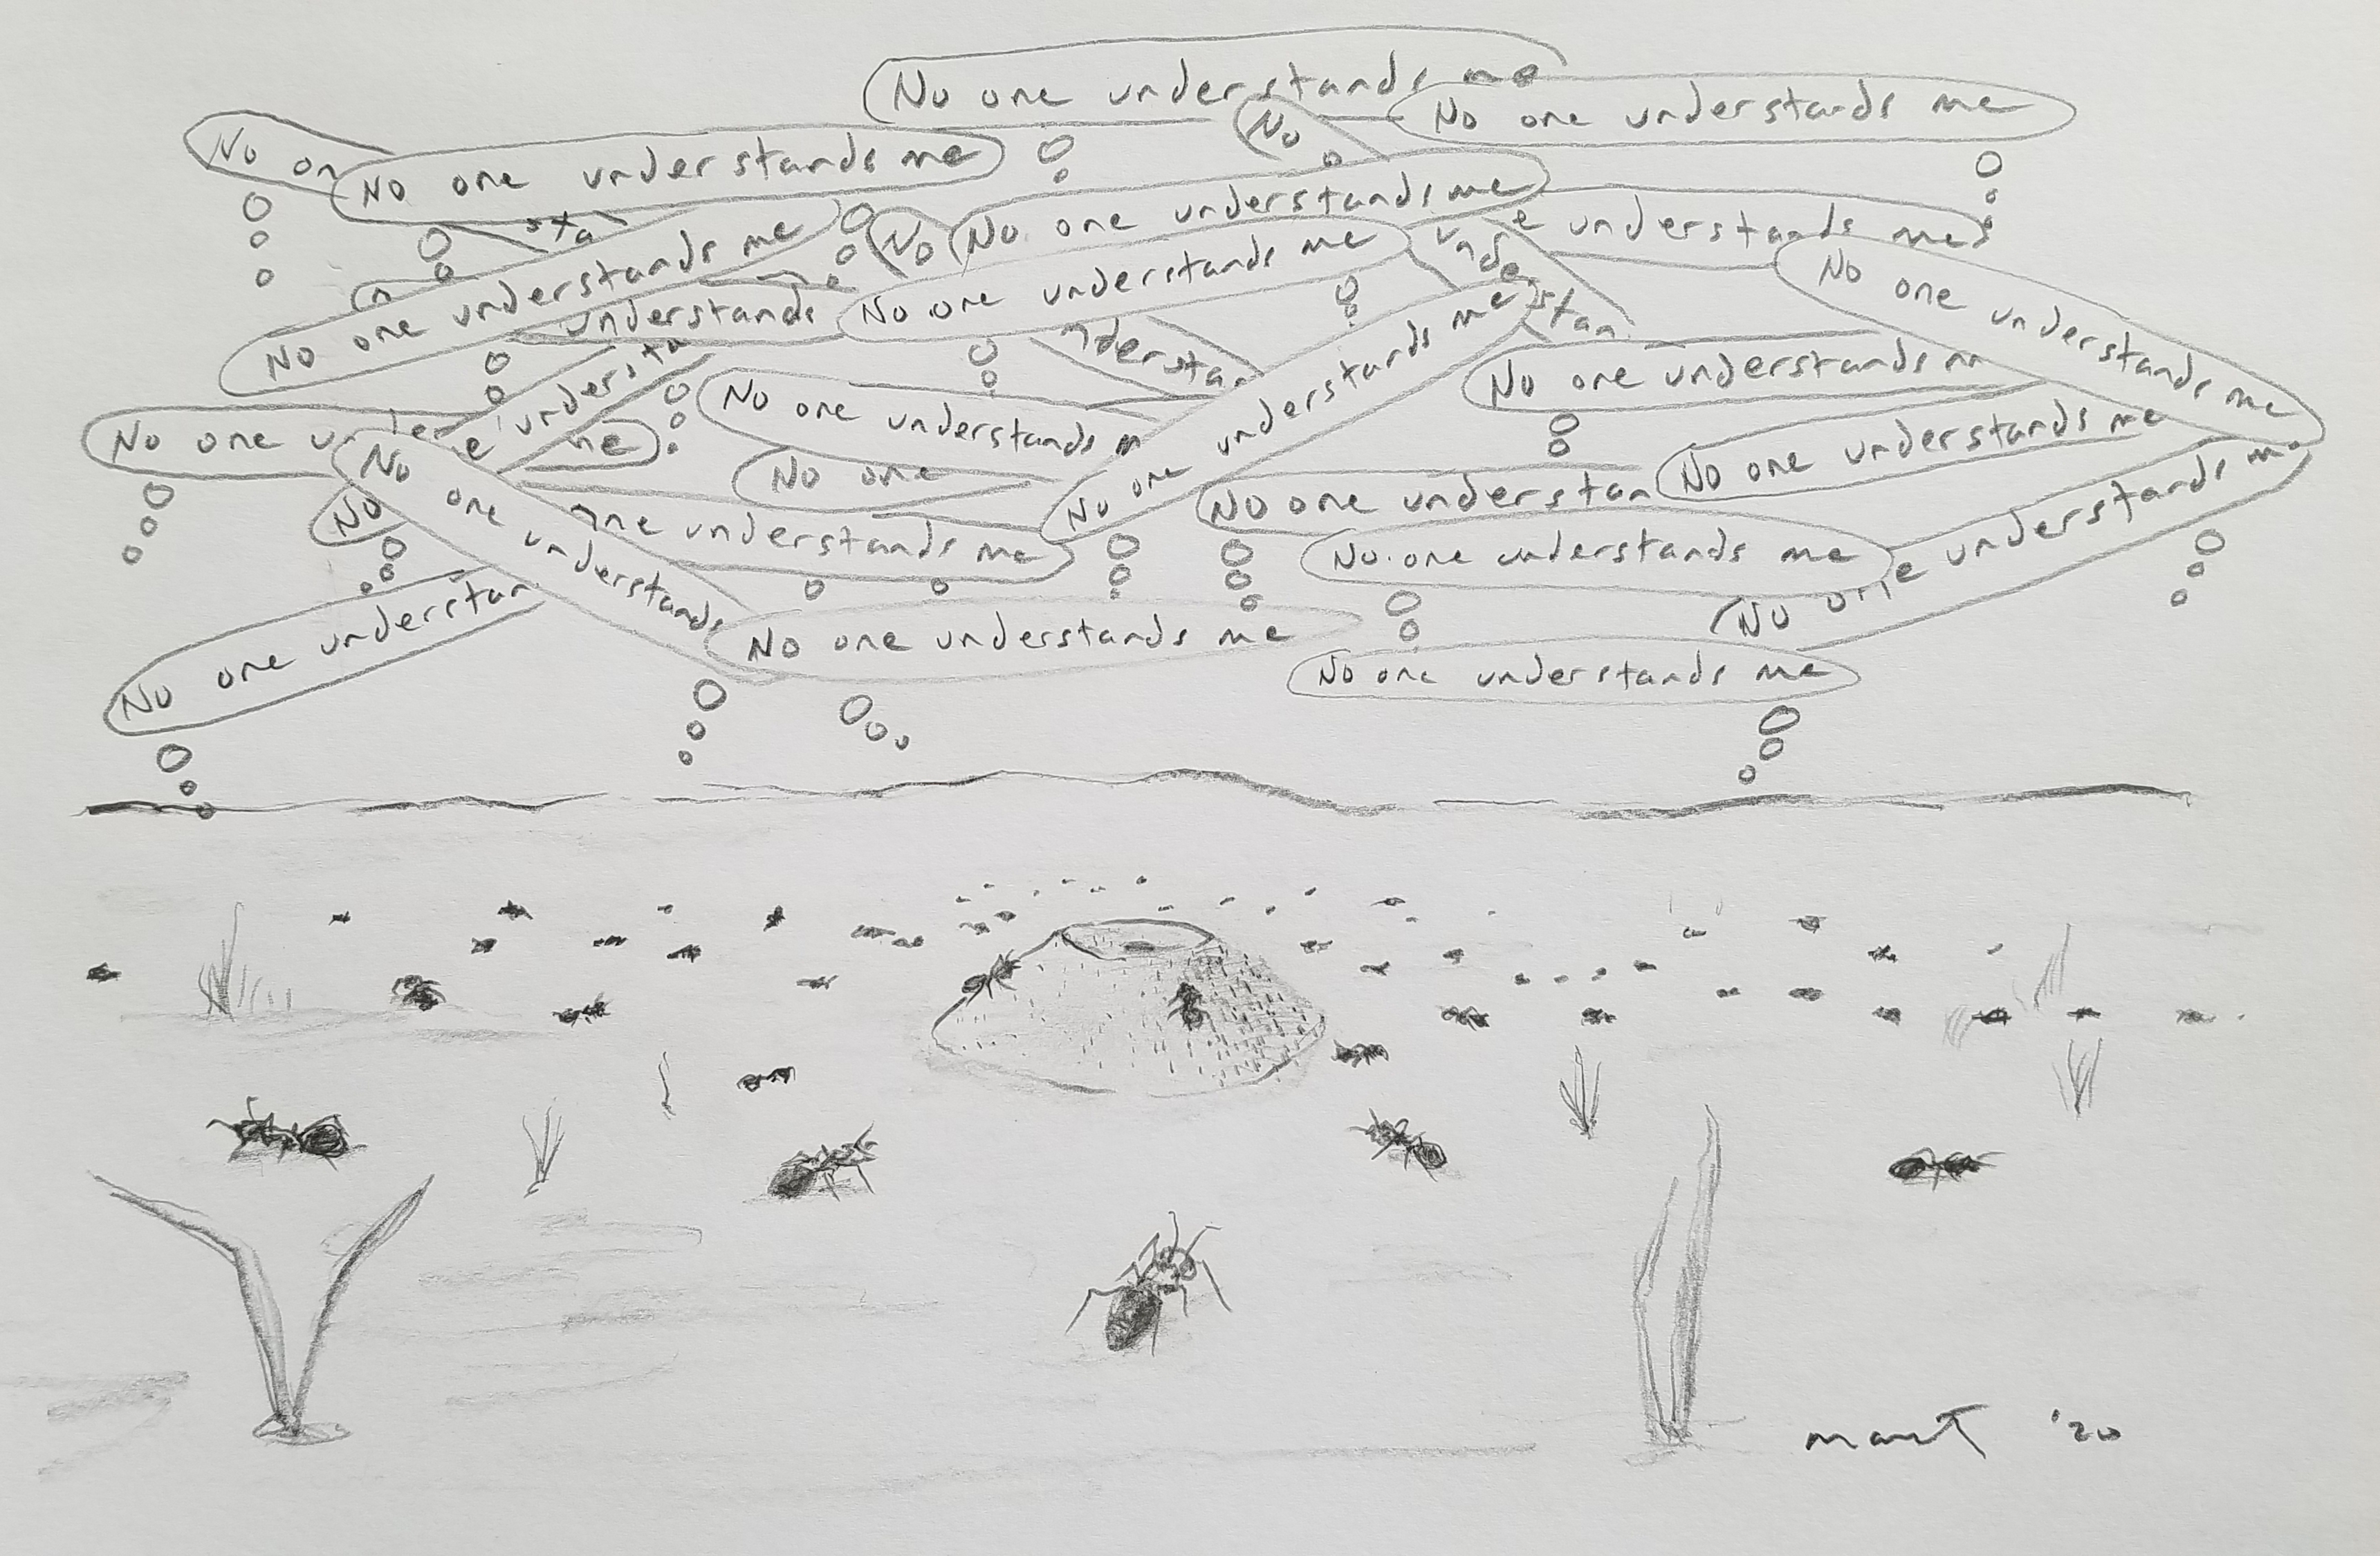 No one understands me
No one understands me
No
No on
No one understands me
sta
No one understands me
No
e understands me
No one understands me
No one understands me
unde
stan
No one understands me
understands
nderstan
No one understands me
No one understands m
e understa
No one understands m
No one un
me
No one understands me
No one
No one understan
No one understands
No
ne understands me
No one understands me
No one understands me
No one understan
No one understands me
No one understands me
'20